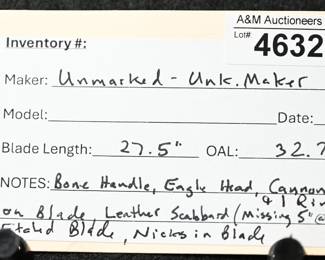 A&M Auctioneers
Inventory #: Lot# 4632
Maker: Unmarked - Unk. Maker
Model: Date:
Blade Length: 27.5" OAL: 32.7
NOTES: Bone Handle, Eagle Head, Cannon
& 1
on Blade, Leather Scabbard (Missing 5" @
Etched Blade, Nicks in Blade